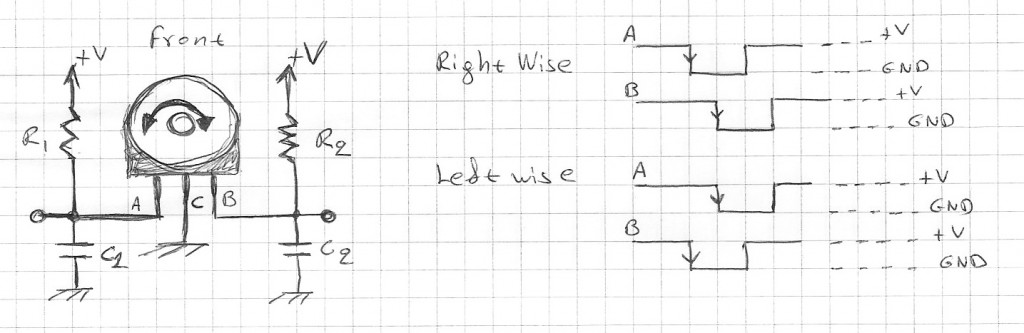 Front
+V
+V
R1
R2
A
C
B
C1
C2
Right Wise
A
+V
GND
B
+V
GND
Left wise
A
+V
GND
B
+V
GND